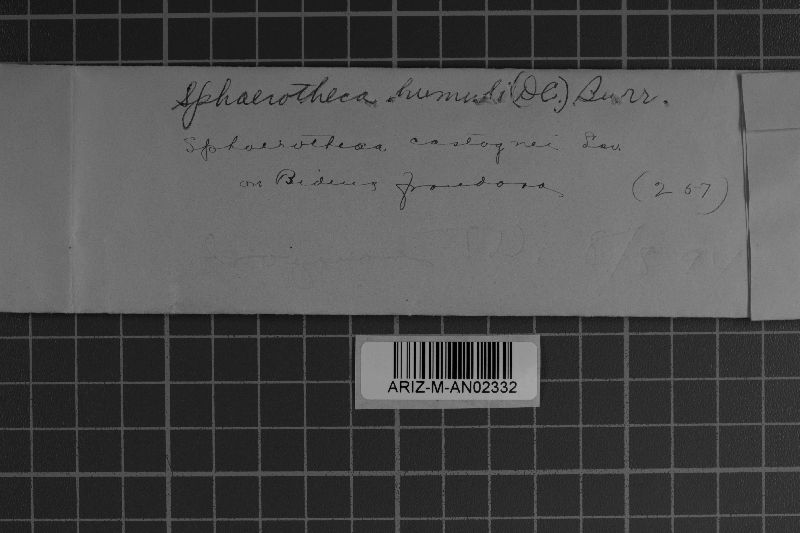 Sphaerotheca humuli (DC.) Burr.
Sphaerotheca castagnei Lev.
on Bidens frondosa (267)
ARIZ-M-AN02332